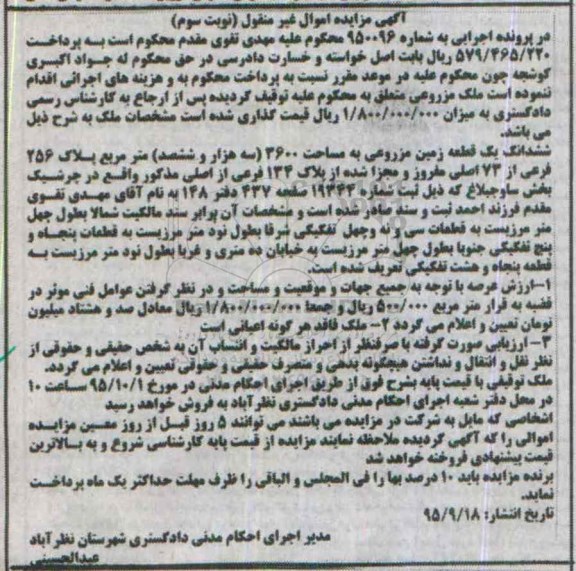 آگهی مزایده اموال غیر منقول (نوبت سوم)
در پرونده اجرایی به شماره ۹۵۰۰۹۶ محکوم علیه مهدی تقوی مقدم محکوم است به پرداخت
۵۷۹/۴۶۵/۲۲۰ ریال بابت اصل خواسته و خسارت دادرسی در حق محکوم له جواد اکبری
گوشچه چون محکوم علیه در موعد مقرر نسبت به پرداخت محکوم به و هزینه های اجرائی اقدام
ننموده است ملک مزروعی متعلق به محکوم علیه توقیف گردیده پس از ارجاع به کارشناس رسمی
دادگستری به میزان ۱/۸۰۰/۰۰۰/۰۰۰ ریال قیمت گذاری شده است مشخصات ملک به شرح ذیل
می باشد.
ششدانگ یک قطعه زمین مزروعی به مساحت ۳۶۰۰ (سه هزار و ششصد) متر مربع پلاک ۲۵۶
فرعی از ۷۳ اصلی مفروز و مجزا شده از پلاک ۱۳۴ فرعی از اصلی مذکور واقع در چرشیک
بخش ساوجبلاغ که ذیل ثبت شماره ۱۹۴۴۳ صفحه ۴۳۷ دفتر ۱۴۸ به نام آقای مهدی تقوی
مقدم فرزند احمد ثبت و سند صادر شده است و مشخصات آن برابر سند مالکیت شمالا بطول چهل
متر مرزیست به قطعات سی و نه وچهل تفکیکی شرقا بطول نود متر مرزیست به قطعات پنجاه و
پنج تفکیکی جنوبا بطول چهل متر مرزیست به خیابان ده متری و غربا بطول نود متر مرزیست به
قطعه پنجاه و هشت تفکیکی تعریف شده است.
۱-ارزش عرصه با توجه به جمیع جهات و موقعیت و مساحت و در نظر گرفتن عوامل فنی موثر در
قضیه به قرار متر مربع ۵۰۰/۰۰۰ ریال و جمعا ۱/۸۰۰/۰۰۰/۰۰۰ ریال معادل صد و هشتاد میلیون
تومان تعیین و اعلام می گردد ۲- ملک فاقد هر گونه اعیانی است
۳- ارزیابی صورت گرفته با صرفنظر از احراز مالکیت و انتساب آن به شخص حقیقی و حقوقی از
نظر نقل و انتقال و نداشتن هیچگونه بدهی و متصرف حقیقی و حقوقی تعیین و اعلام می گردد.
ملک توقیفی با قیمت پایه بشرح فوق از طریق اجرای احکام مدنی در مورخ ۹۵/۱۰/۱ ساعت ۱۰
در محل دفتر شعبه اجرای احکام مدنی دادگستری نظرآباد به فروش خواهد رسید
اشخاصی که مایل به شرکت در مزایده می باشند می توانند ۵ روز قبل از روز معین مزایده
اموالی را که آگهی گردیده ملاحظه نمایند مزایده از قیمت پایه کارشناسی شروع و به بالاترین
قیمت پیشنهادی فروخته خواهد شد
برنده مزایده باید ۱۰ درصد بها را فی المجلس و الباقی را ظرف مهلت حداکثر یک ماه پرداخت
نماید.
تاریخ انتشار: ۹۵/۹/۱۸
مدیر اجرای احکام مدنی دادگستری شهرستان نظرآباد
عبدالحسینی